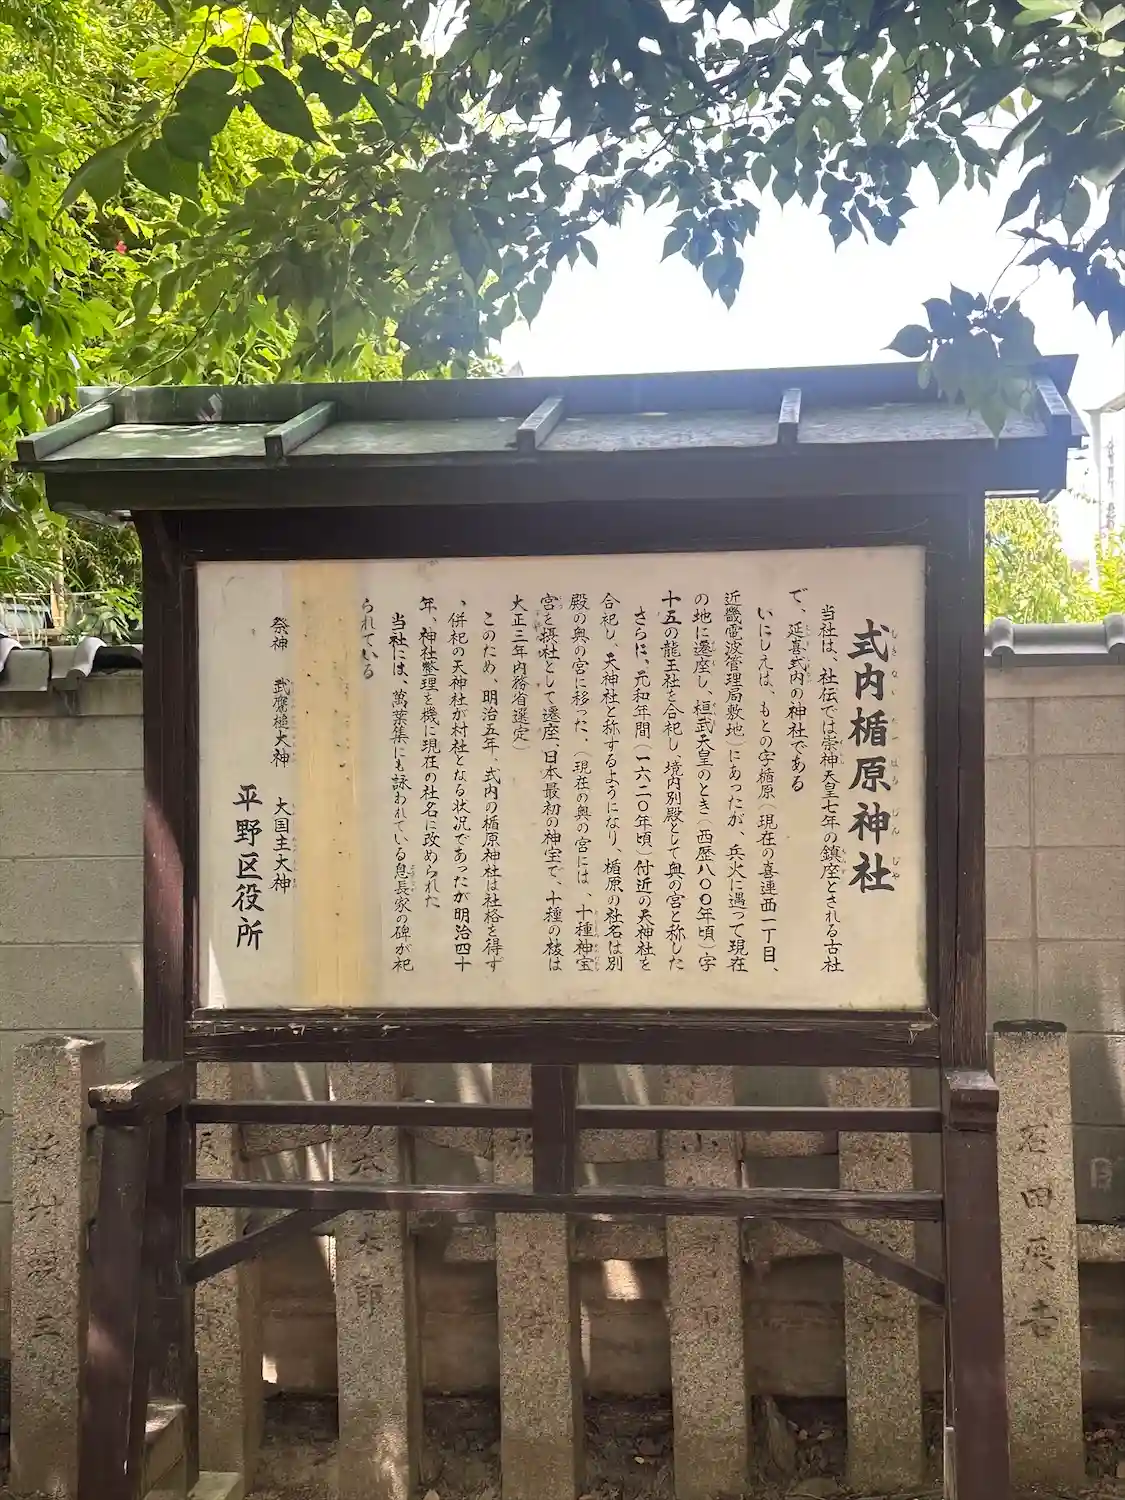 式内楯原神社
しきないたてはらじんじゃ
当社は、社伝では崇神天皇七年の鎮座とされる古社
で、延喜式内の神社である
いにしえは、もとの字楯原（現在の喜連西一丁目、
近畿電波管理局敷地）にあったが、兵火に遇って現在
の地に遷座し、桓武天皇のとき（西歴八〇〇年頃）字
十五の龍王社を合祀し、境内別殿として奥の宮と称した
さらに、元和年間（一六二〇年頃）付近の天神社を
合祀し、天神社と称するようになり、楯原の社名は別
殿の奥の宮に移った．（現在の奥の宮には、十種神宝
宮を摂社として遷座、日本最初の神宝で、十種の祓は
大正三年内務省選定）
このため、明治五年、式内の楯原神社は社格を得ず
、併祀の天神社が村社となる状況であったが明治四十
年、神社整理を機に現在の社名に改められた
当社には、萬葉集にも詠われている息長家の碑が祀
られている
祭神　武甕槌大神　大国主大神
平野区役所
若田辰吉